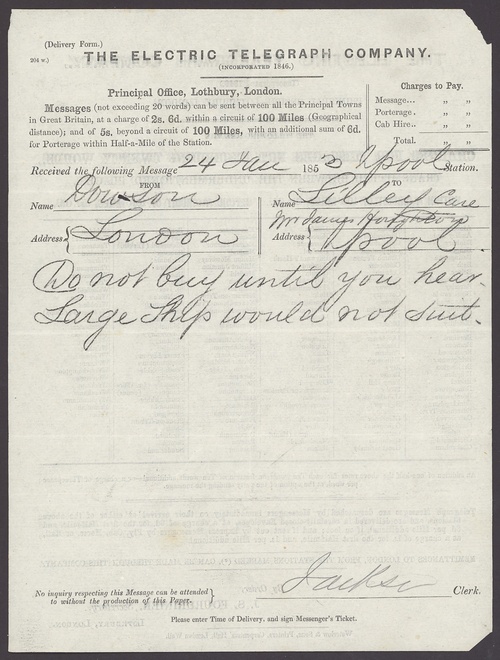 (Delivery Form.)
204 w.)
THE ELECTRIC TELEGRAPH COMPANY.
(INCORPORATED 1846.)
Principal Office, Lothbury, London.
Messages (not exceeding 20 words) can be sent between all the Principal Towns
in Great Britain, at a charge of 2s. 6d. within a circuit of 100 Miles (Geographical
distance); and of 5s. beyond a circuit of 100 Miles, with an additional sum of 6d.
for Porterage within Half-a-Mile of the Station.
Charges to Pay.
Message... „ „
Porterage. „ „
Cab Hire.. „ „
Total. „ „
Received the following Message 24 Jan 1853 L'pool Station.
FROM
Name Dowson
Address London
TO
Name Lilley Care
Mr James
Address L'pool
Do not buy until you hear.
Large Ship would not suit.
No inquiry respecting this Message can be attended
to without the production of this Paper.
Clerk.
Please enter Time of Delivery, and sign Messenger's Ticket.